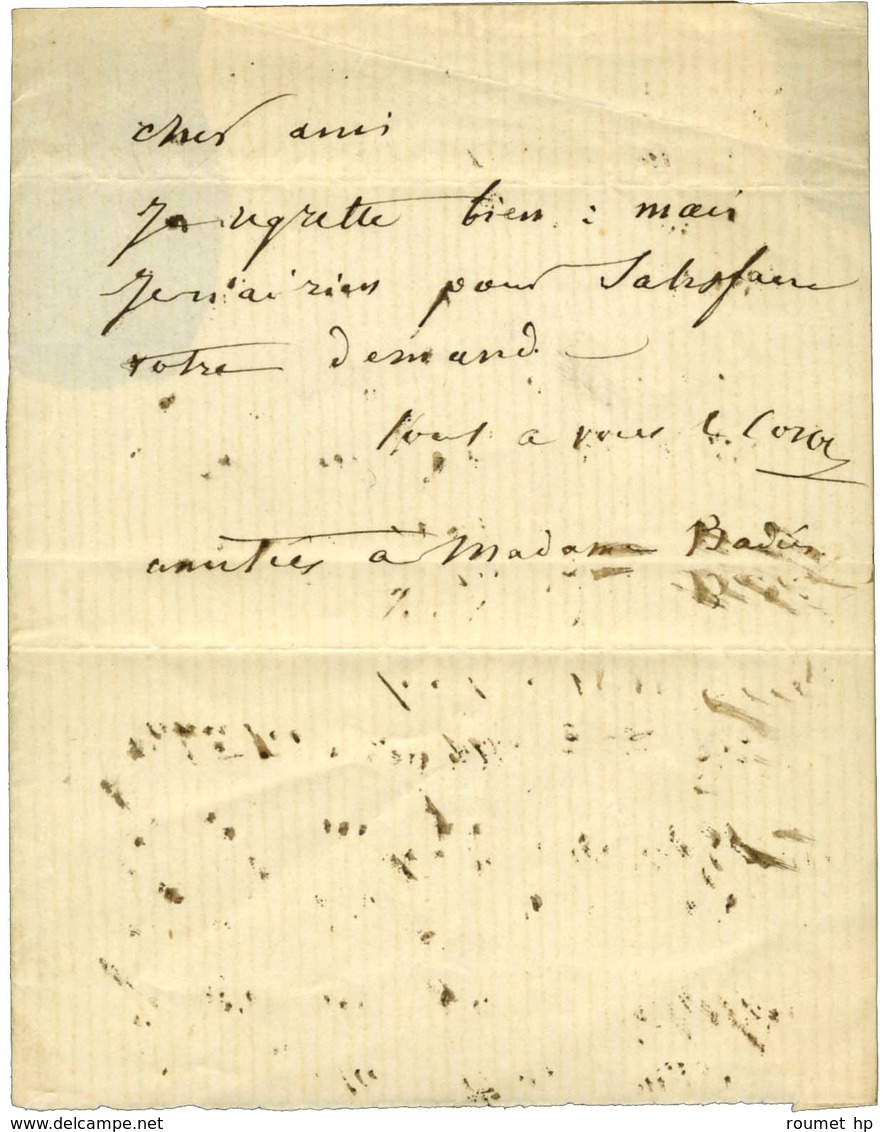 cher ami
Je regrette bien : mais
Je n'ai rien pour Satisfaire
votre demande
tout a vous C. Corot
amitiés à Madame Badin
www.delcampe.net
roumet hp